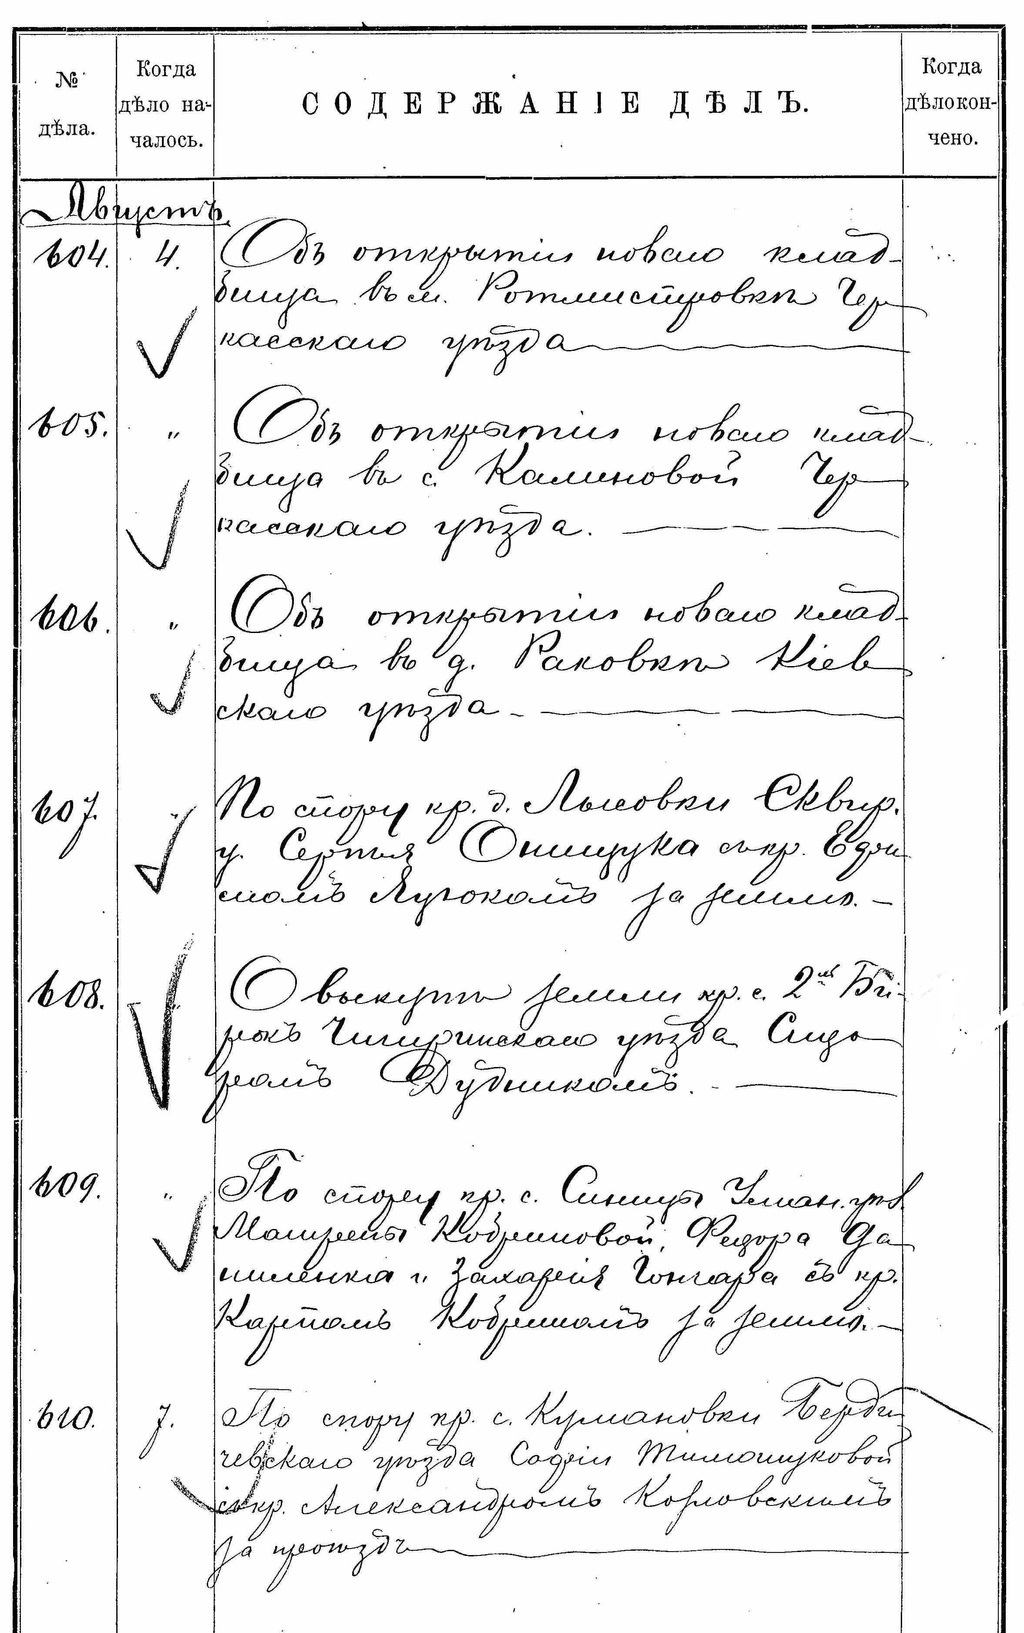 № дѣла.
Когда дѣло на-
чалось.
СОДЕРЖАНІЕ ДѢЛЪ.
Когда
дѣло кон-
чено.
Августъ
604. 4. Объ открытіи новаго клад-
бища въ м. Ротмистровкѣ Чер
касскаго уѣзда
605. " Объ открытіи новаго клад-
бища въ с. Калиновой Чер
касскаго уѣзда.
606. " Объ открытіи новаго клад-
бища въ д. Раковкѣ Кіев
скаго уѣзда
607. " По спору кр. д. Лысовки Сквир.
у. Сергѣя Онищука съ кр. Ефи
момъ за землю.
608. " О выкупѣ земли кр. с. 2й
Чигиринскаго уѣзда Сидо
ромъ Дудникомъ.
609. " По спору кр. с. Синицы Уман. уѣз.
Матрены Кобриновой, Федора Да
ниленка и Захарія Гончара съ кр.
Карпомъ Кобриномъ за землю.
610. 7. По спору кр. с. Кумановки Берди
чевскаго уѣзда Софіи Тимощуковой
съ кр. Александромъ Козловскимъ
за проѣздъ